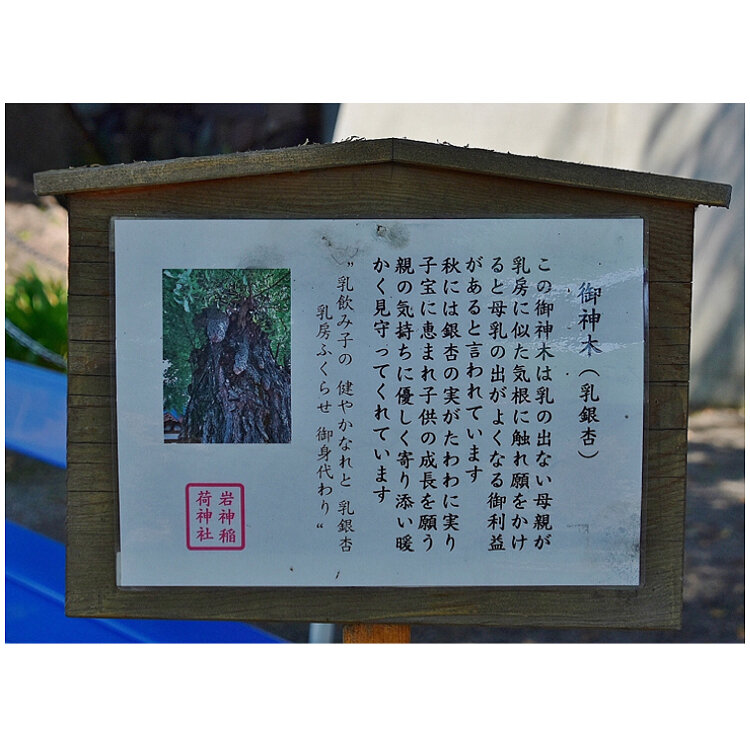 御神木（乳銀杏）
この御神木は乳の出ない母親が
乳房に似た気根に触れ願をかけ
ると母乳の出がよくなる御利益
があると言われています
秋には銀杏の実がたわわに実り
子宝に恵まれ子供の成長を願う
親の気持ちに優しく寄り添い暖
かく見守ってくれています
〝乳飲み子の 健やかなれと 乳銀杏
乳房ふくらせ 御身代わり〟
岩神稲
荷神社